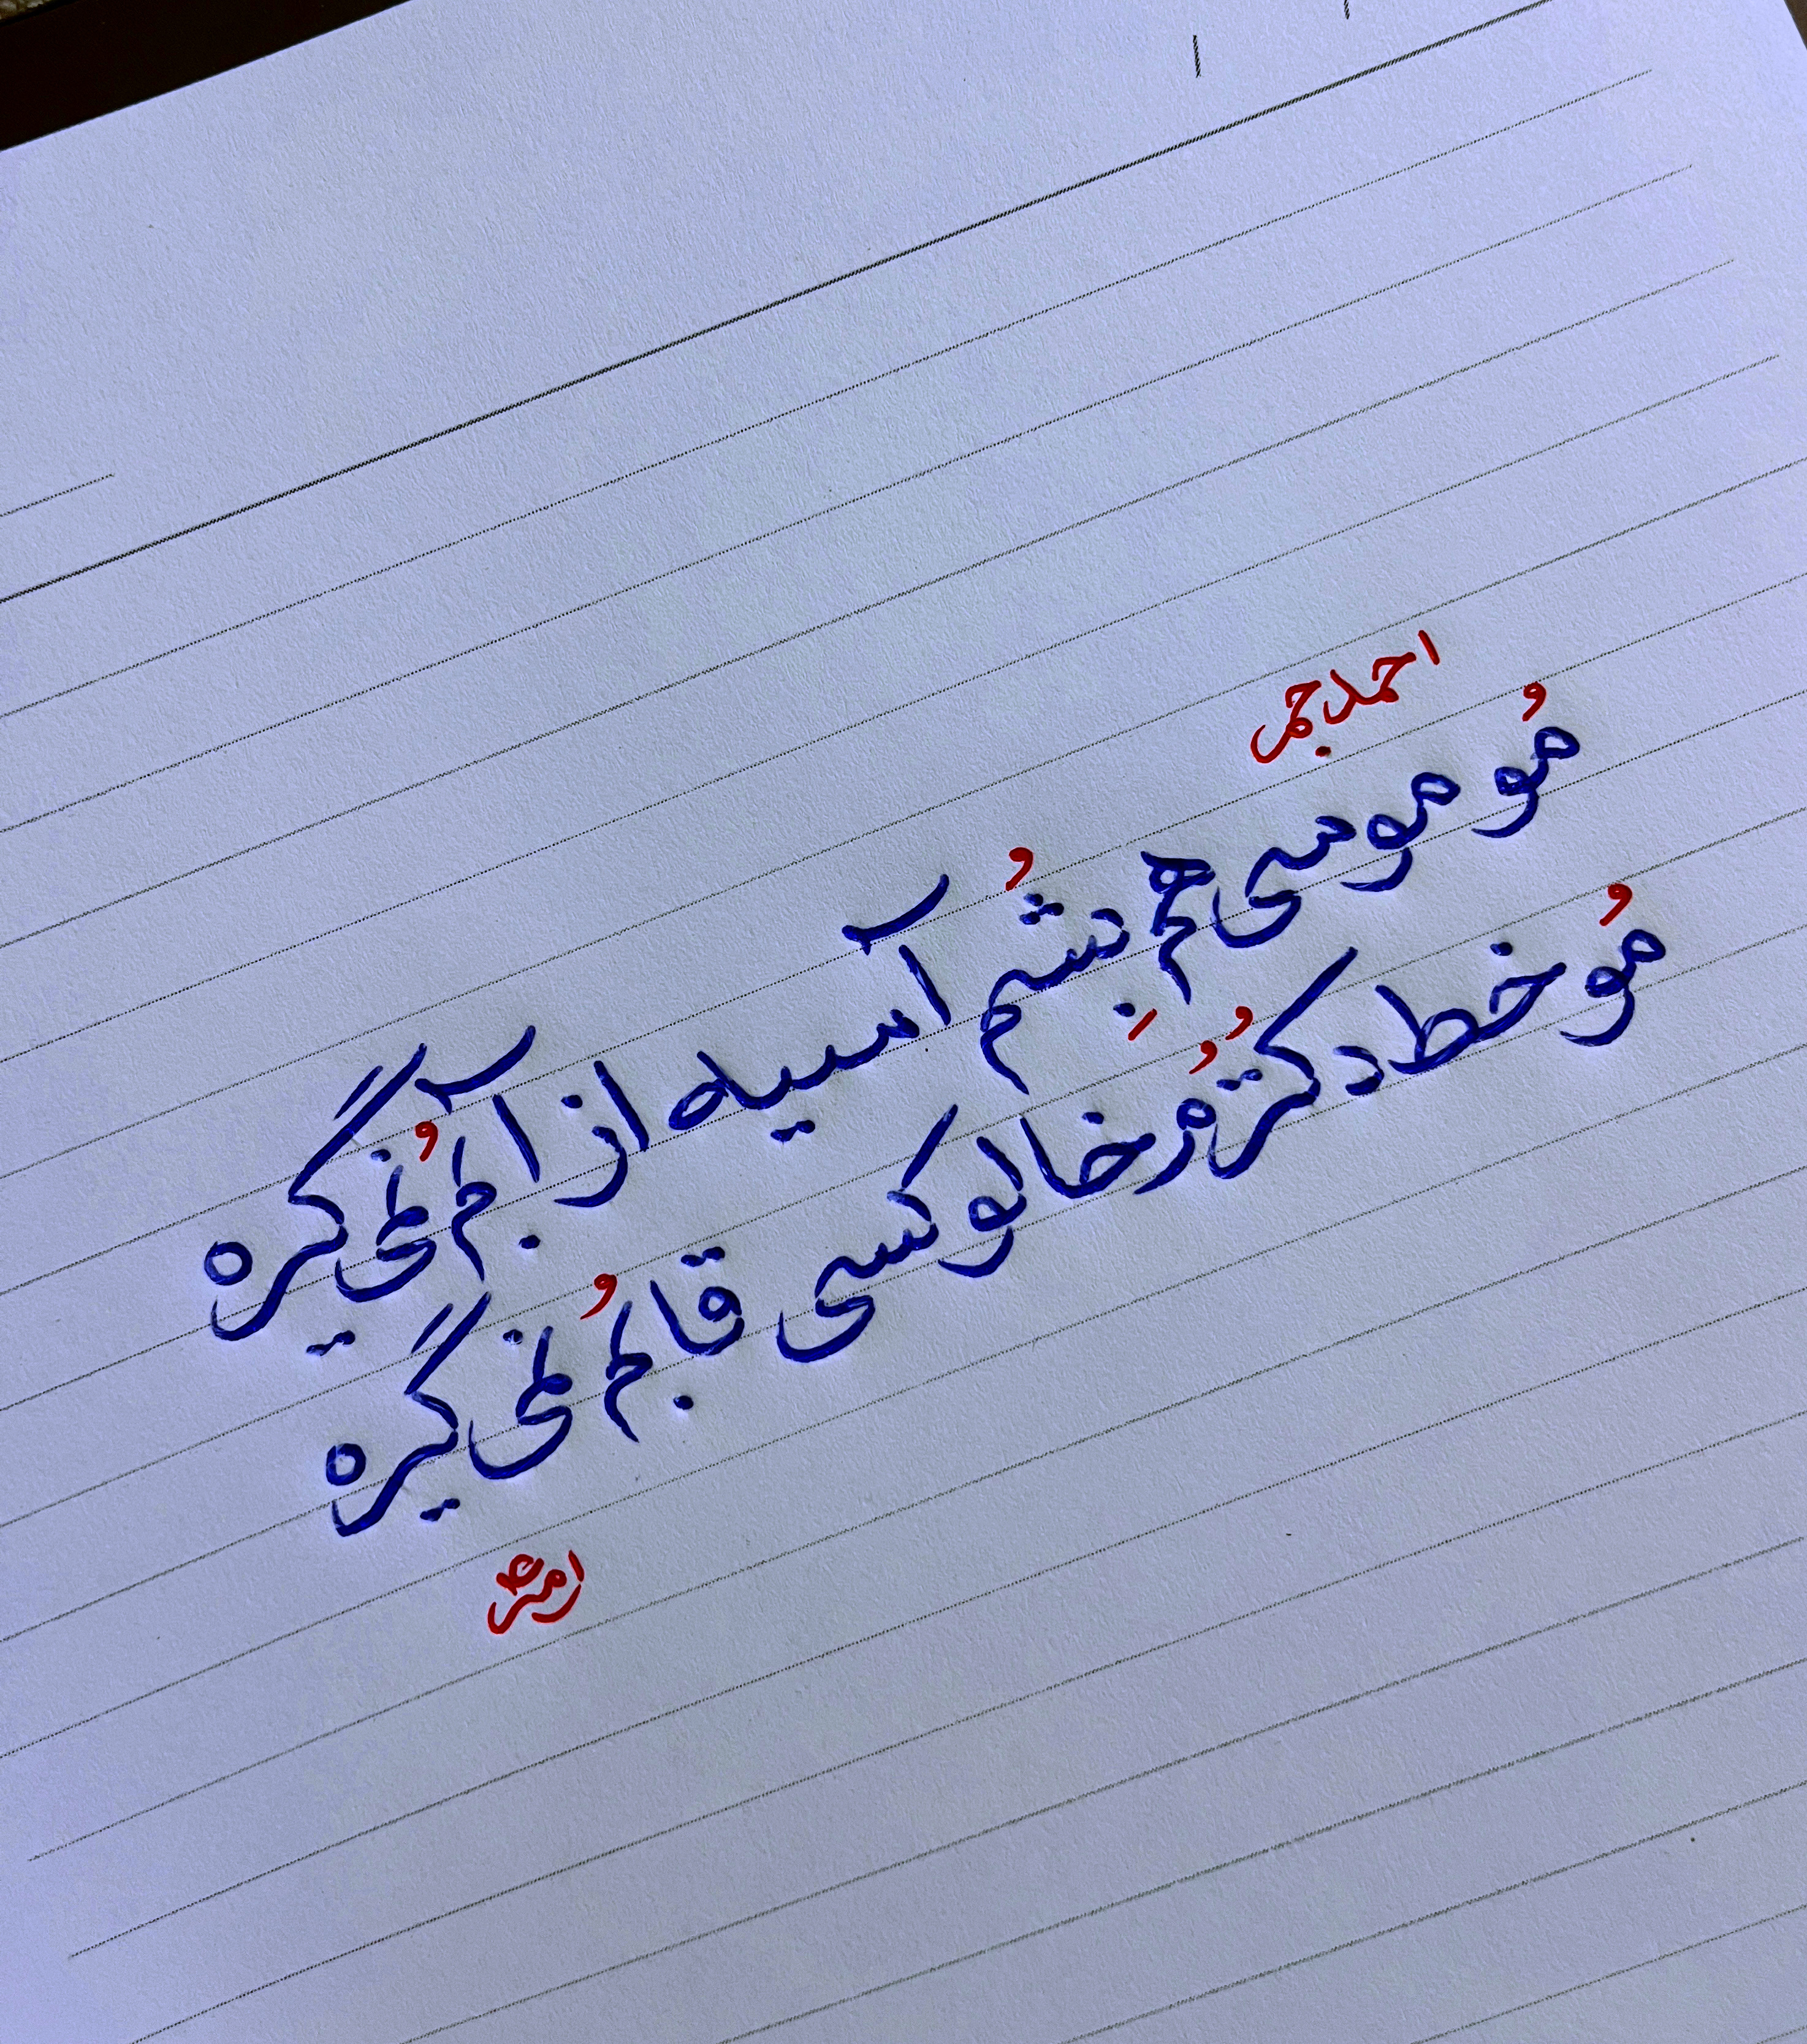 احمد جم
مُو موسی هم بِشُم آسیه از آبم نُمی گیره
مُو خط دکترُمُ خالو کسی قابمُ نمی گیره